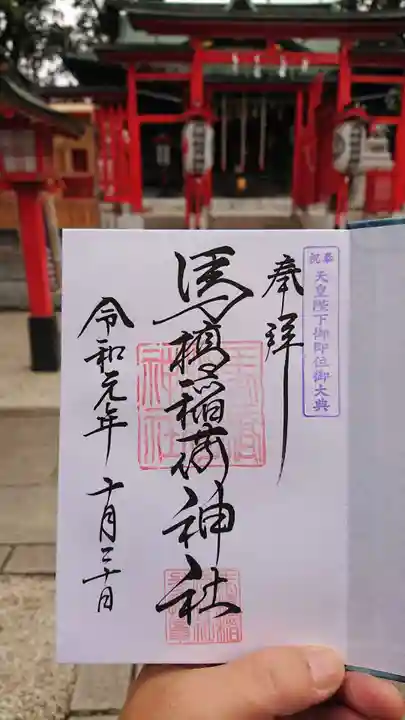 奉祝 天皇陛下御即位御大典
奉拝
馬橋稲荷神社
令和元年
十月二十日